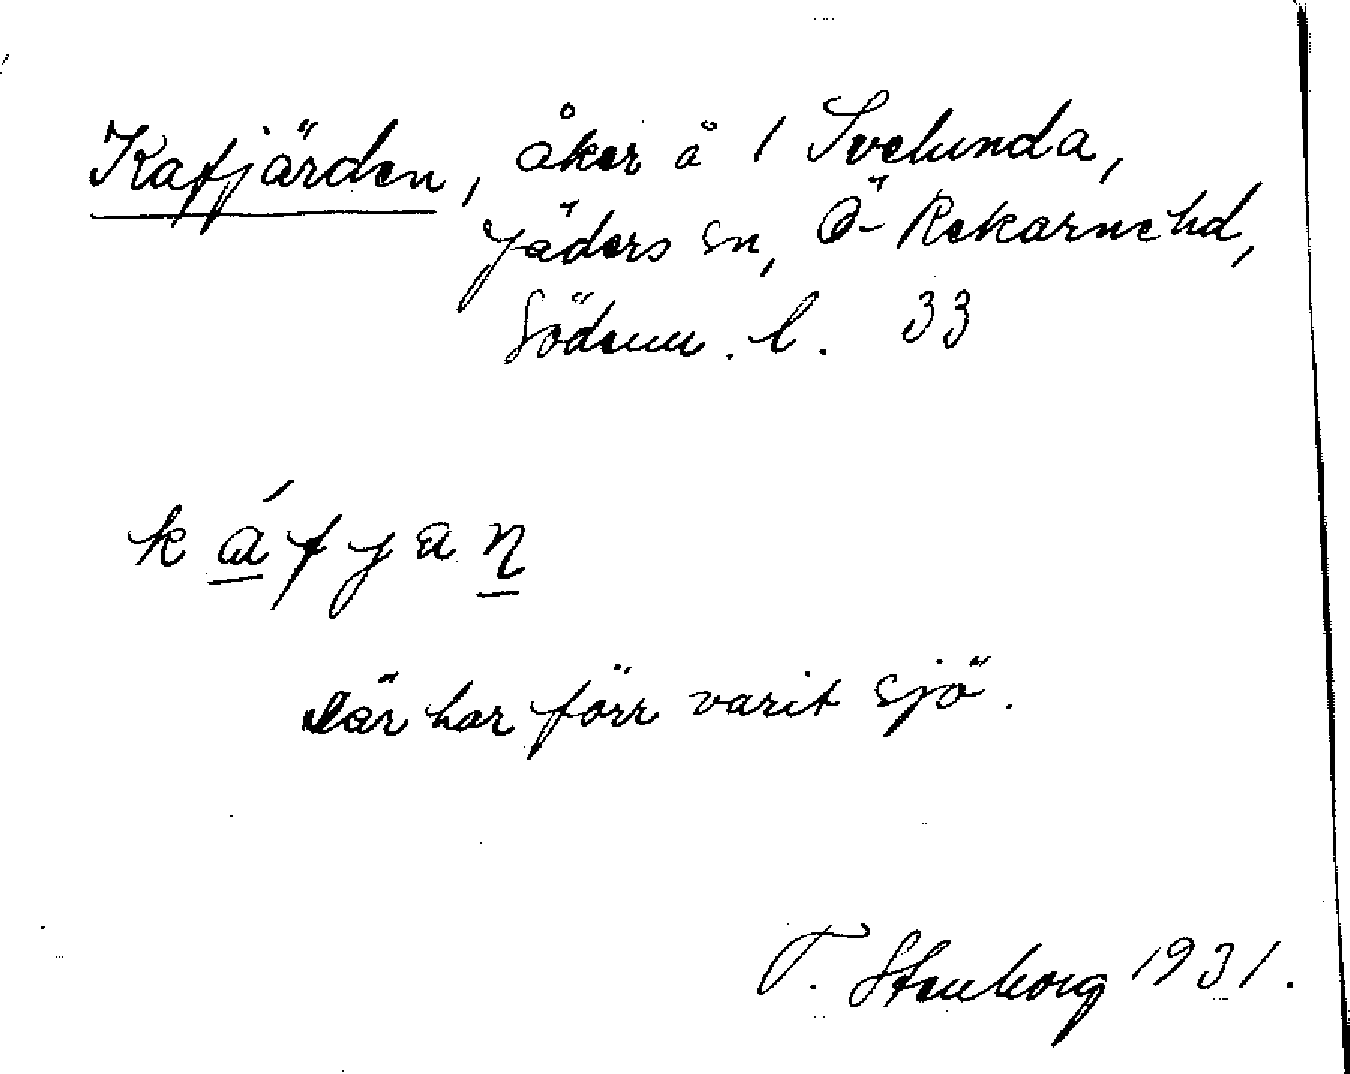 Kafjärden, åker å 1 Svelunda,
Jäders sn, Ö- Rekarne hd,
Söderm. l. 33
k á f j a n
där har förr varit sjö.
T. Stenborg 1931.